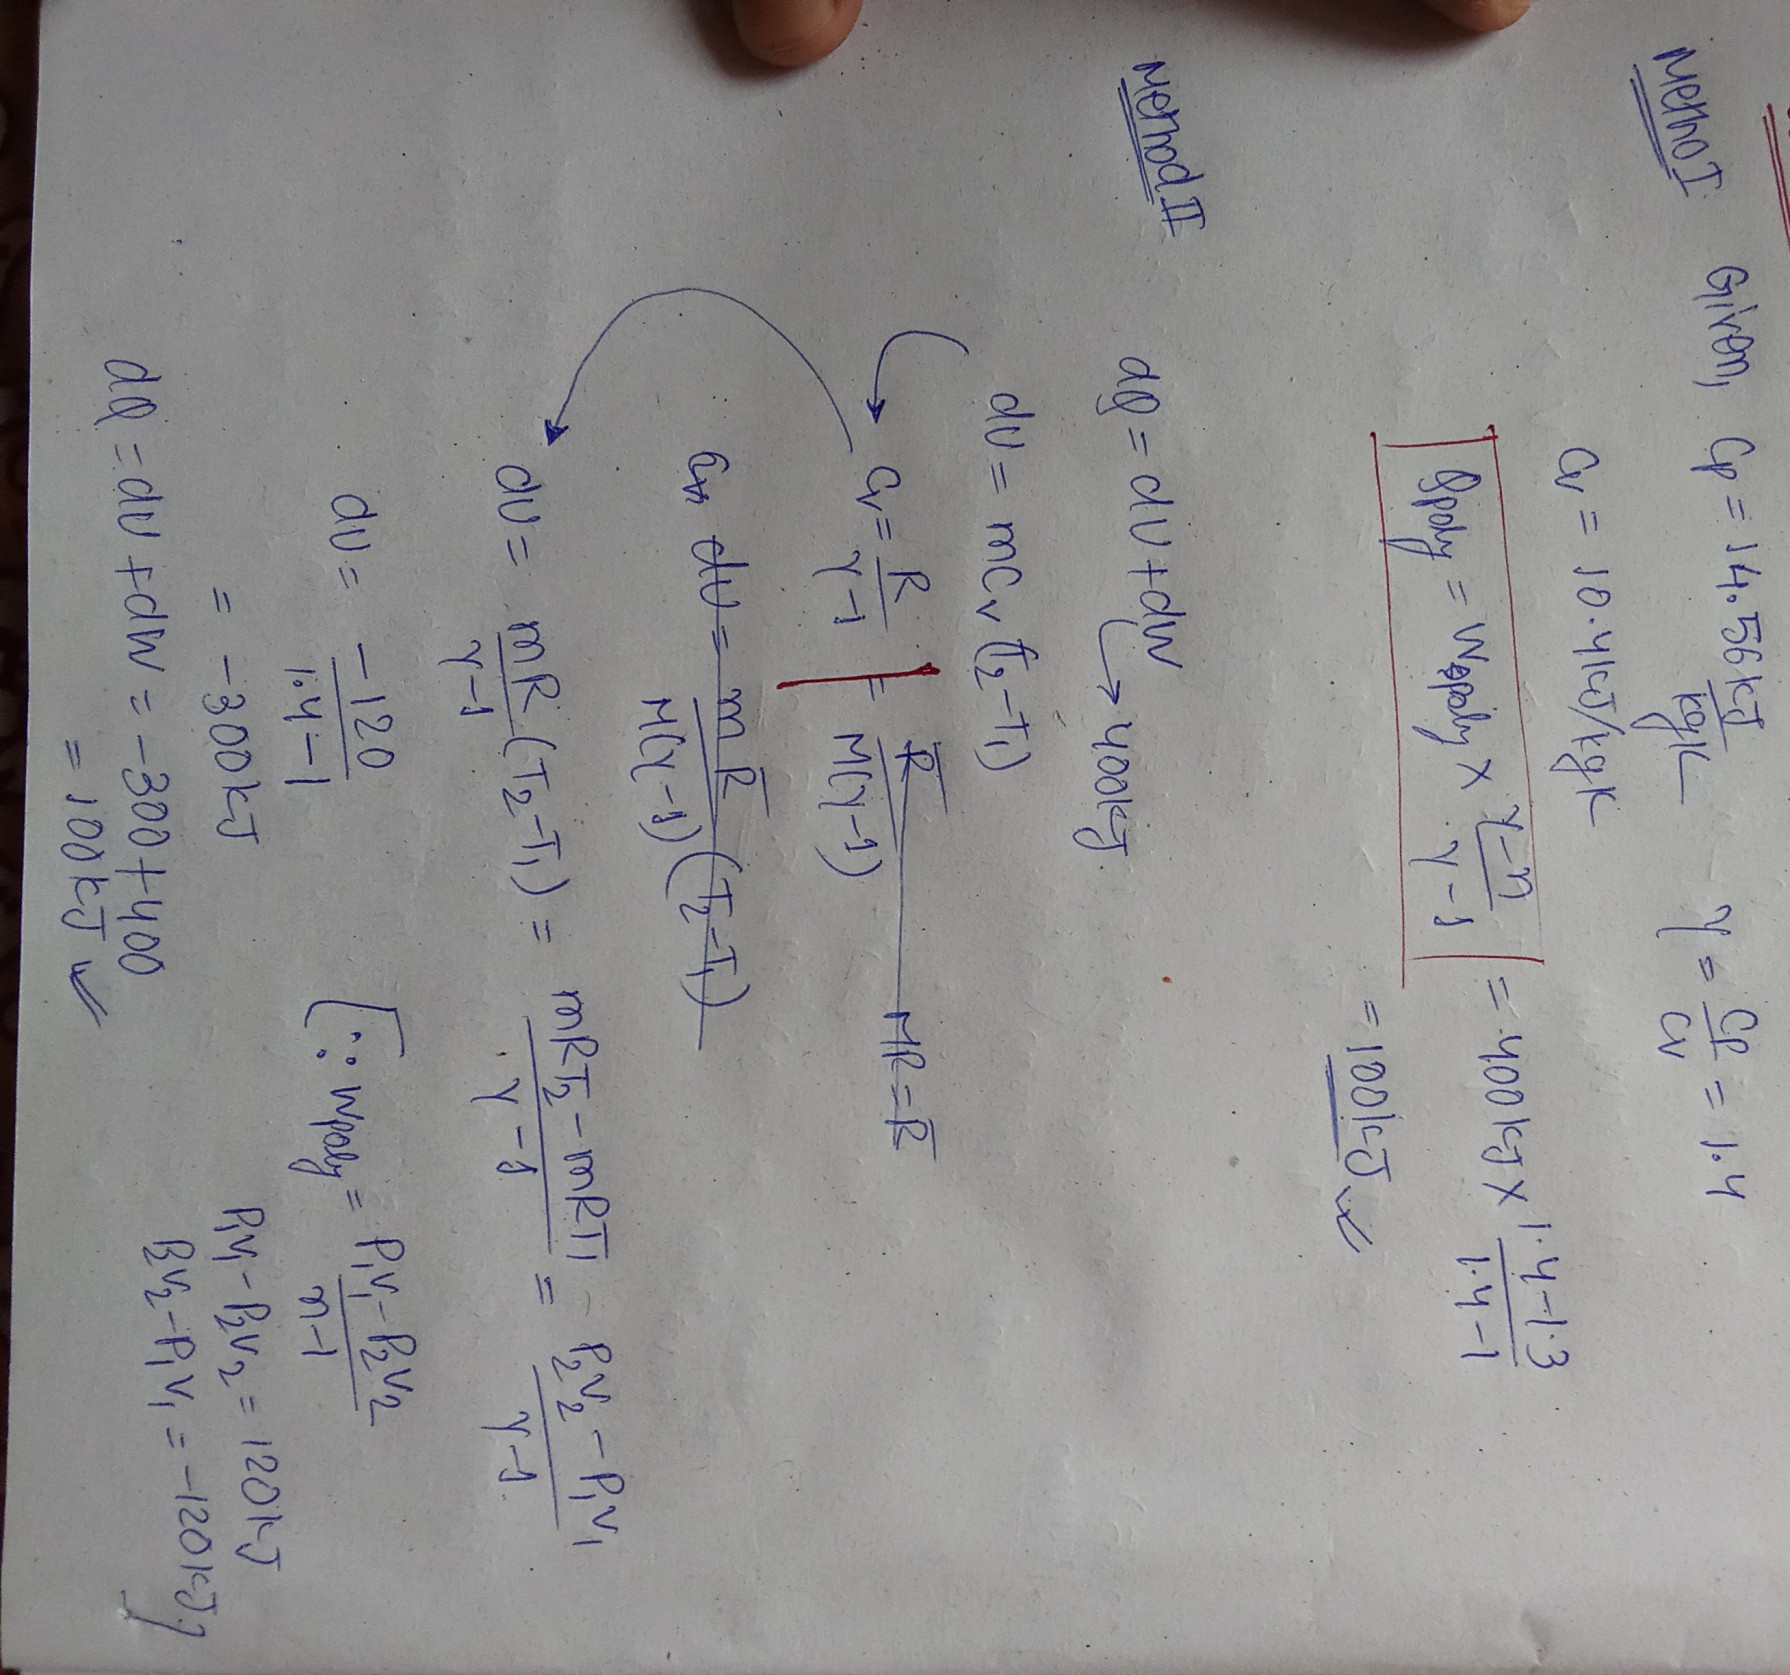 Method I Given, Cp = 14.56 kJ/kgK γ = Cp/Cv = 1.4
Cv = 10.4 kJ/kgK
Qpoly = Wpoly × (γ-n)/(γ-1) = 400kJ × (1.4-1.3)/(1.4-1)
= 100kJ
Method II dQ = dU + dW → 400kJ
dU = mCv (T2-T1)
Cv = R/(γ-1) = R̄/(M(γ-1)) MR = R̄
Cv dU = mR̄/(M(γ-1)) (T2-T1)
dU = mR/(γ-1) (T2-T1) = (mRT2 - mRT1)/(γ-1) = (P2V2 - P1V1)/(γ-1)
dU = -120/(1.4-1) [∵ Wpoly = (P1V1 - P2V2)/(n-1)
= -300kJ P1V1 - P2V2 = 120kJ
P2V2 - P1V1 = -120kJ]
dQ = dU + dW = -300 + 400
= 100kJ